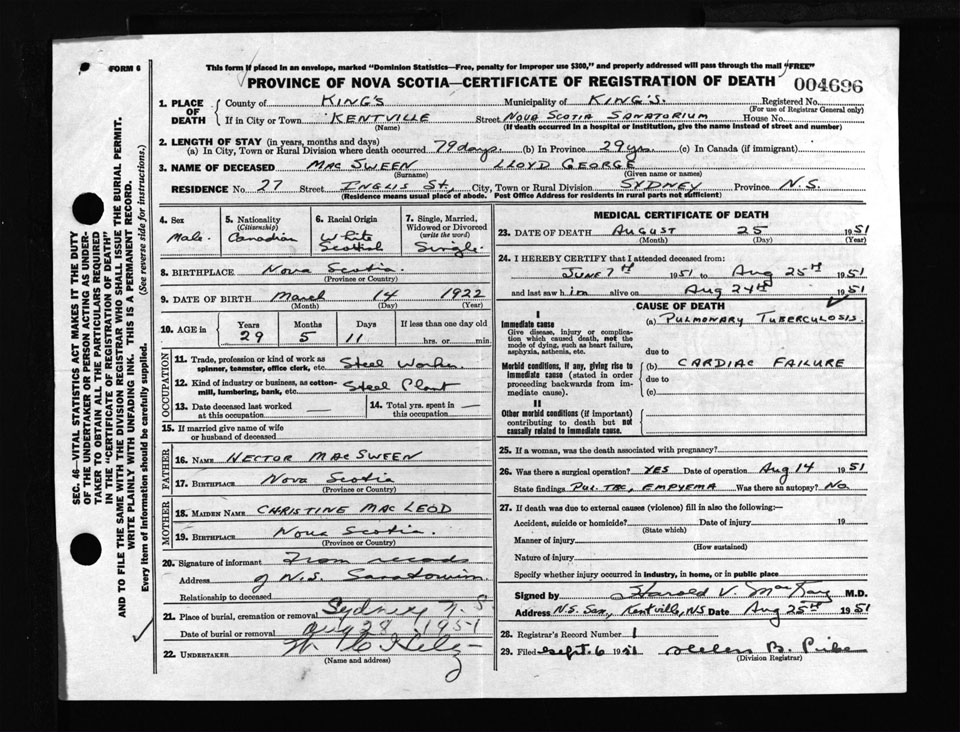 FORM 6
This form if placed in an envelope, marked "Dominion Statistics—Free, penalty for improper use $300," and properly addressed will pass through the mail "FREE"
PROVINCE OF NOVA SCOTIA—CERTIFICATE OF REGISTRATION OF DEATH
004696
1. PLACE OF DEATH
County of KING'S Municipality of KING'S. Registered No.
(For use of Registrar General only)
If in City or Town KENTVILLE Street NOVA SCOTIA SANATORIUM House No.
(Name) (If death occurred in a hospital or institution, give the name instead of street and number)
2. LENGTH OF STAY (in years, months and days)
(a) In City, Town or Rural Division where death occurred 79 days (b) In Province 29 yrs. (c) In Canada (if immigrant)
3. NAME OF DECEASED MAC SWEEN LLOYD GEORGE
(Surname) (Given name or names)
RESIDENCE No. 27 Street INGLIS St., City, Town or Rural Division SYDNEY Province N.S.
(Residence means usual place of abode. Post Office Address for residents in rural parts not sufficient)
4. Sex
Male.
5. Nationality
(Citizenship)
Canadian
6. Racial Origin
White
Scottish
7. Single, Married, Widowed or Divorced
(write the word)
Single.
8. BIRTHPLACE Nova Scotia.
(Province or Country)
9. DATE OF BIRTH March 14 1922
(Month) (Day) (Year)
10. AGE in
Years Months Days If less than one day old
29 5 11 hrs. or min.
OCCUPATION
11. Trade, profession or kind of work as spinner, teamster, office clerk, etc. Steel Worker.
12. Kind of industry or business, as cotton-mill, lumbering, bank, etc. Steel Plant
13. Date deceased last worked at this occupation —
14. Total yrs. spent in this occupation —
15. If married give name of wife or husband of deceased
FATHER
16. NAME HECTOR MAC SWEEN
17. BIRTHPLACE Nova Scotia
(Province or Country)
MOTHER
18. MAIDEN NAME CHRISTINE MAC LEOD
19. BIRTHPLACE Nova Scotia.
(Province or Country)
20. Signature of informant From records
Address of N.S. Sanatorium
Relationship to deceased
21. Place of burial, cremation or removal Sydney N.S
Date of burial or removal Aug 28, 1951
22. UNDERTAKER
(Name and address)
MEDICAL CERTIFICATE OF DEATH
23. DATE OF DEATH AUGUST 25 1951
(Month) (Day) (Year)
24. I HEREBY CERTIFY that I attended deceased from:
JUNE 7TH 1951 to Aug 25TH 1951
and last saw him alive on Aug 24TH 1951
CAUSE OF DEATH
I
Immediate cause
Give disease, injury or complication which caused death, not the mode of dying, such as heart failure, asphyxia, asthenia, etc.
(a) PULMONARY TUBERCULOSIS.
due to
Morbid conditions, if any, giving rise to immediate cause (stated in order proceeding backwards from immediate cause)
(b) CARDIAC FAILURE
due to
(c)
II
Other morbid conditions (if important) contributing to death but not causally related to immediate cause.
25. If a woman, was the death associated with pregnancy?
26. Was there a surgical operation? YES Date of operation Aug 14 1951
State findings PUL. TBC, EMPYEMA Was there an autopsy? NO
27. If death was due to external causes (violence) fill in also the following:—
Accident, suicide or homicide? Date of injury 19
(State which)
Manner of injury
(How sustained)
Nature of injury
Specify whether injury occurred in industry, in home, or in public place
Signed by Harold V. MacKay M.D.
Address N.S. San, Kentville, NS Date Aug 25TH 1951
28. Registrar's Record Number 1
29. Filed Sept. 6 1951 Helen B.
(Division Registrar)
SEC. 46—VITAL STATISTICS ACT MAKES IT THE DUTY
OF THE UNDERTAKER OR PERSON ACTING AS UNDER-
TAKER TO OBTAIN ALL THE PARTICULARS REQUIRED
IN THE "CERTIFICATE OF REGISTRATION OF DEATH"
AND TO FILE THE SAME WITH THE DIVISION REGISTRAR WHO SHALL ISSUE THE BURIAL PERMIT.
WRITE PLAINLY WITH UNFADING INK. THIS IS A PERMANENT RECORD.
Every item of information should be carefully supplied. (See reverse side for instructions.)